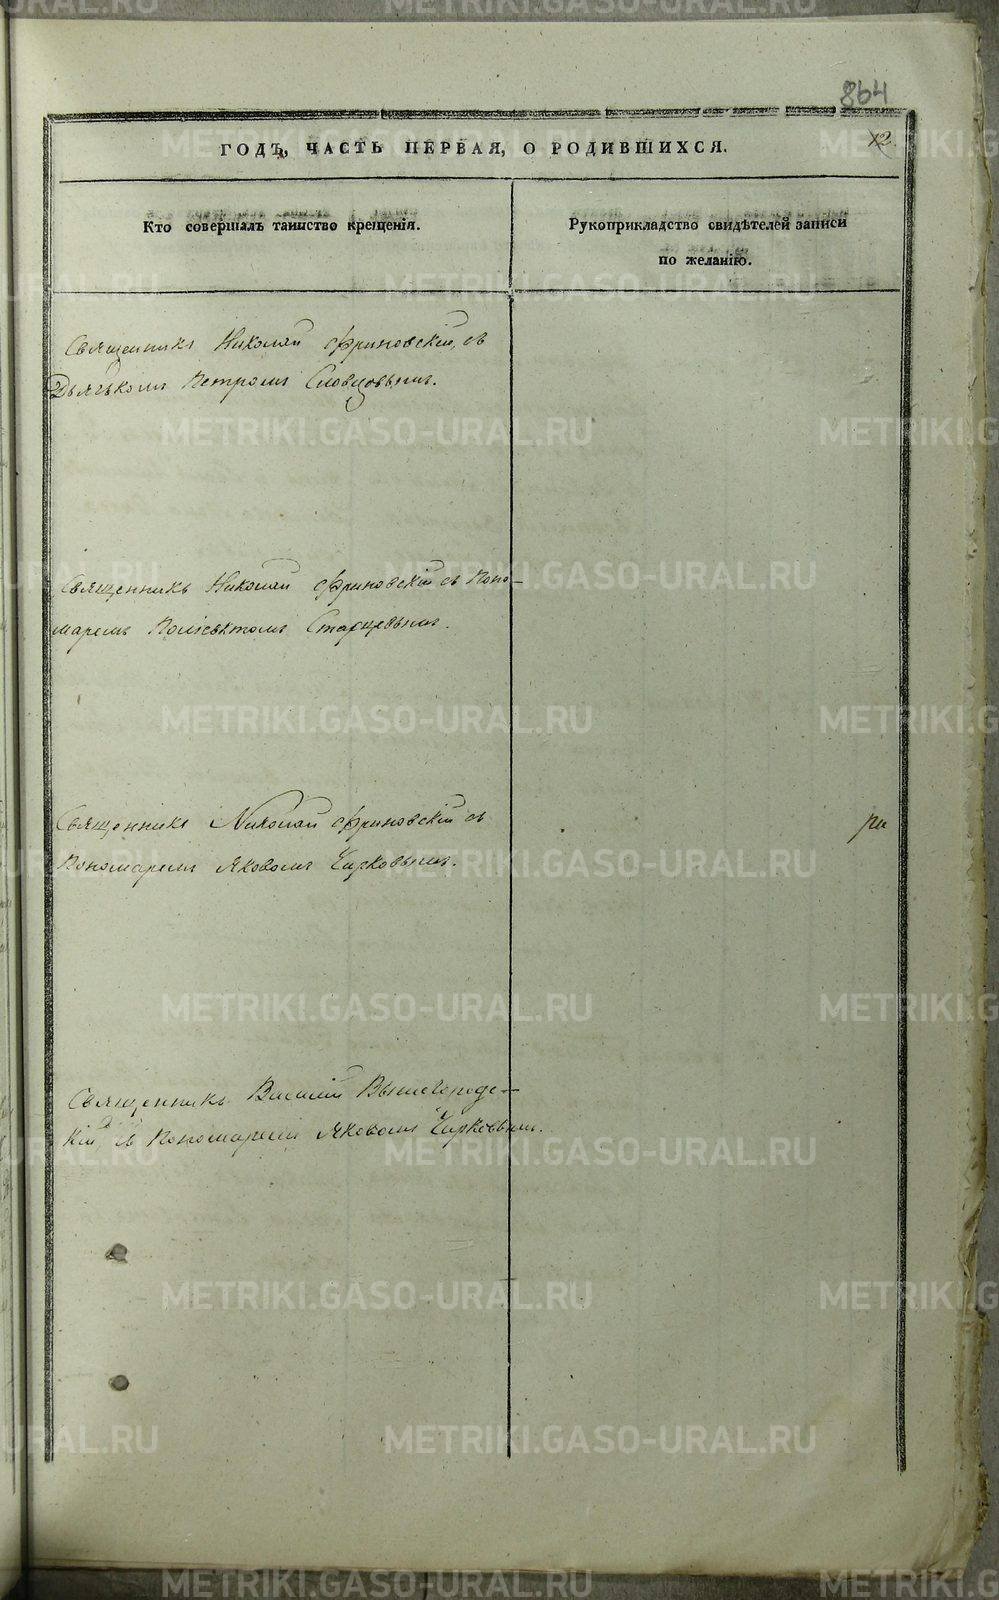 864
12.
ГОДЪ, ЧАСТЬ ПЕРВАЯ, О РОДИВШИХСЯ.
Кто совершалъ таинство крещенія.
Рукоприкладство свидѣтелей записи
по желанію.
Священникъ Николай Фриновскій, съ
Дьячькомъ Петромъ Словцовымъ.
Священникъ Николай Фриновскій съ Поно-
маремъ Поліевктомъ Старцевымъ.
Священникъ Николай Фриновскій съ
Пономаремъ Яковомъ Чирковымъ.
ри
Священникъ Василій Вышегородс-
кій съ Пономаремъ Яковомъ Чирковымъ.
METRIKI.GASO-URAL.RU